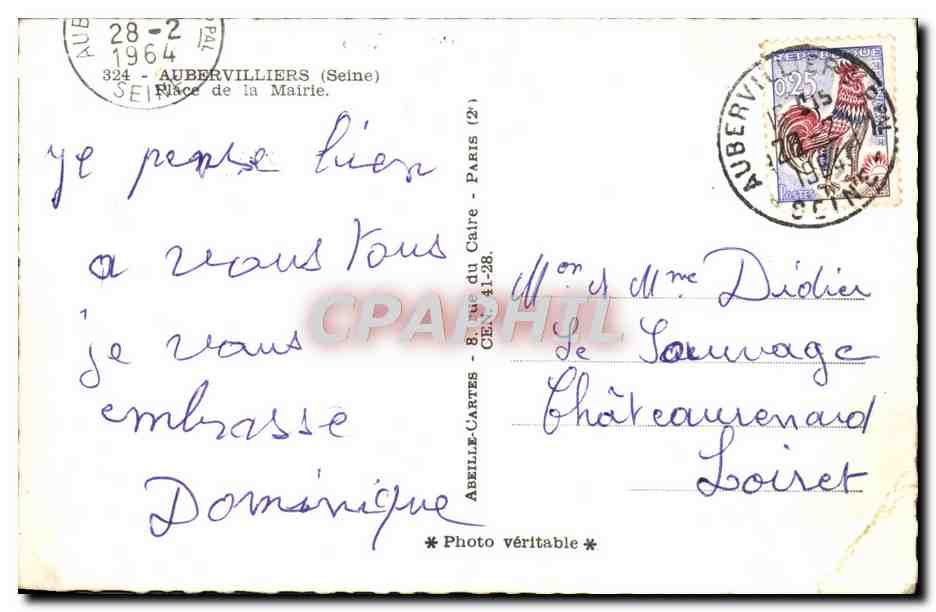 AUB PAL
28-2
1964
SEINE
324 - AUBERVILLIERS (Seine)
Place de la Mairie.
je pense bien
a vous tous
je vous
embrasse
Dominique
ABEILLE-CARTES - 8, rue du Caire - PARIS (2e)
CEN. 41-28.
* Photo véritable *
REPUBLIQUE
0,25
POSTES
AUBERVILLIERS PPAL
1964
SEINE
Mon & Mme Didier
Le Sauvage
Châteaurenard
Loiret
CPAPHIL